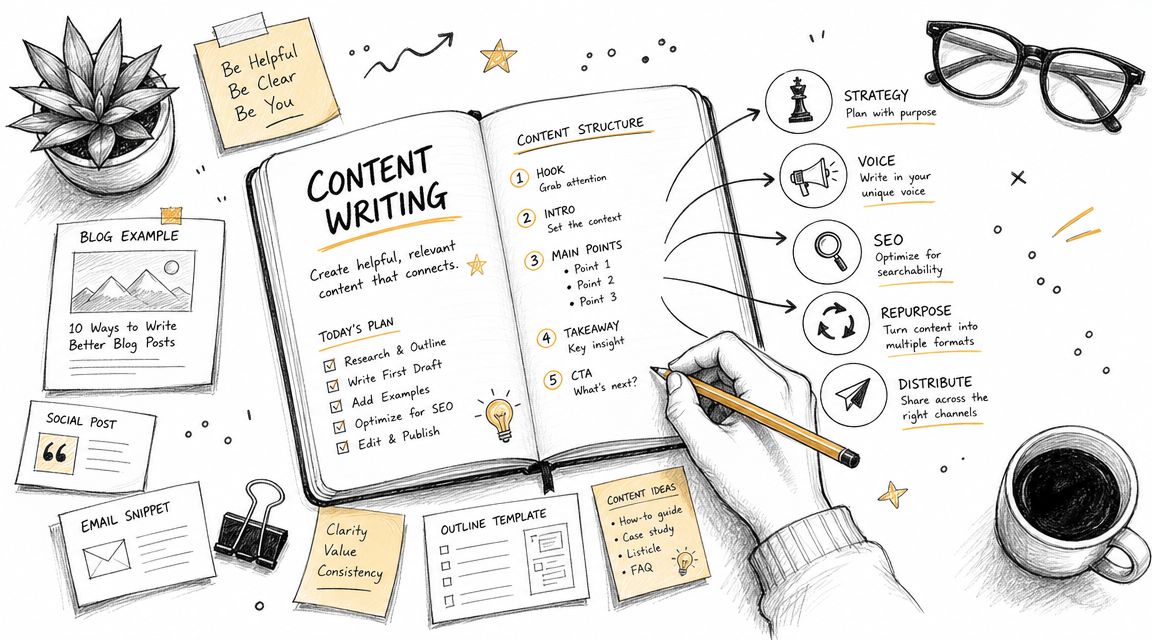 Be Helpful
Be Clear
Be You
CONTENT
WRITING
Create helpful, relevant
content that connects.
TODAY'S PLAN
Research & Outline
Write First Draft
Add Examples
Optimize for SEO
Edit & Publish
CONTENT STRUCTURE
1 HOOK
Grab attention
2 INTRO
Set the context
3 MAIN POINTS
• Point 1
• Point 2
• Point 3
4 TAKEAWAY
Key insight
5 CTA
What's next?
STRATEGY
Plan with purpose
VOICE
Write in your
unique voice
SEO
Optimize for
searchability
REPURPOSE
Turn content into
multiple formats
DISTRIBUTE
Share across the
right channels
BLOG EXAMPLE
10 Ways to Write
Better Blog Posts
SOCIAL POST
EMAIL SNIPPET
Clarity
Value
Consistency
OUTLINE TEMPLATE
CONTENT IDEAS
• How-to guide
• Case study
• Listicle
• FAQ